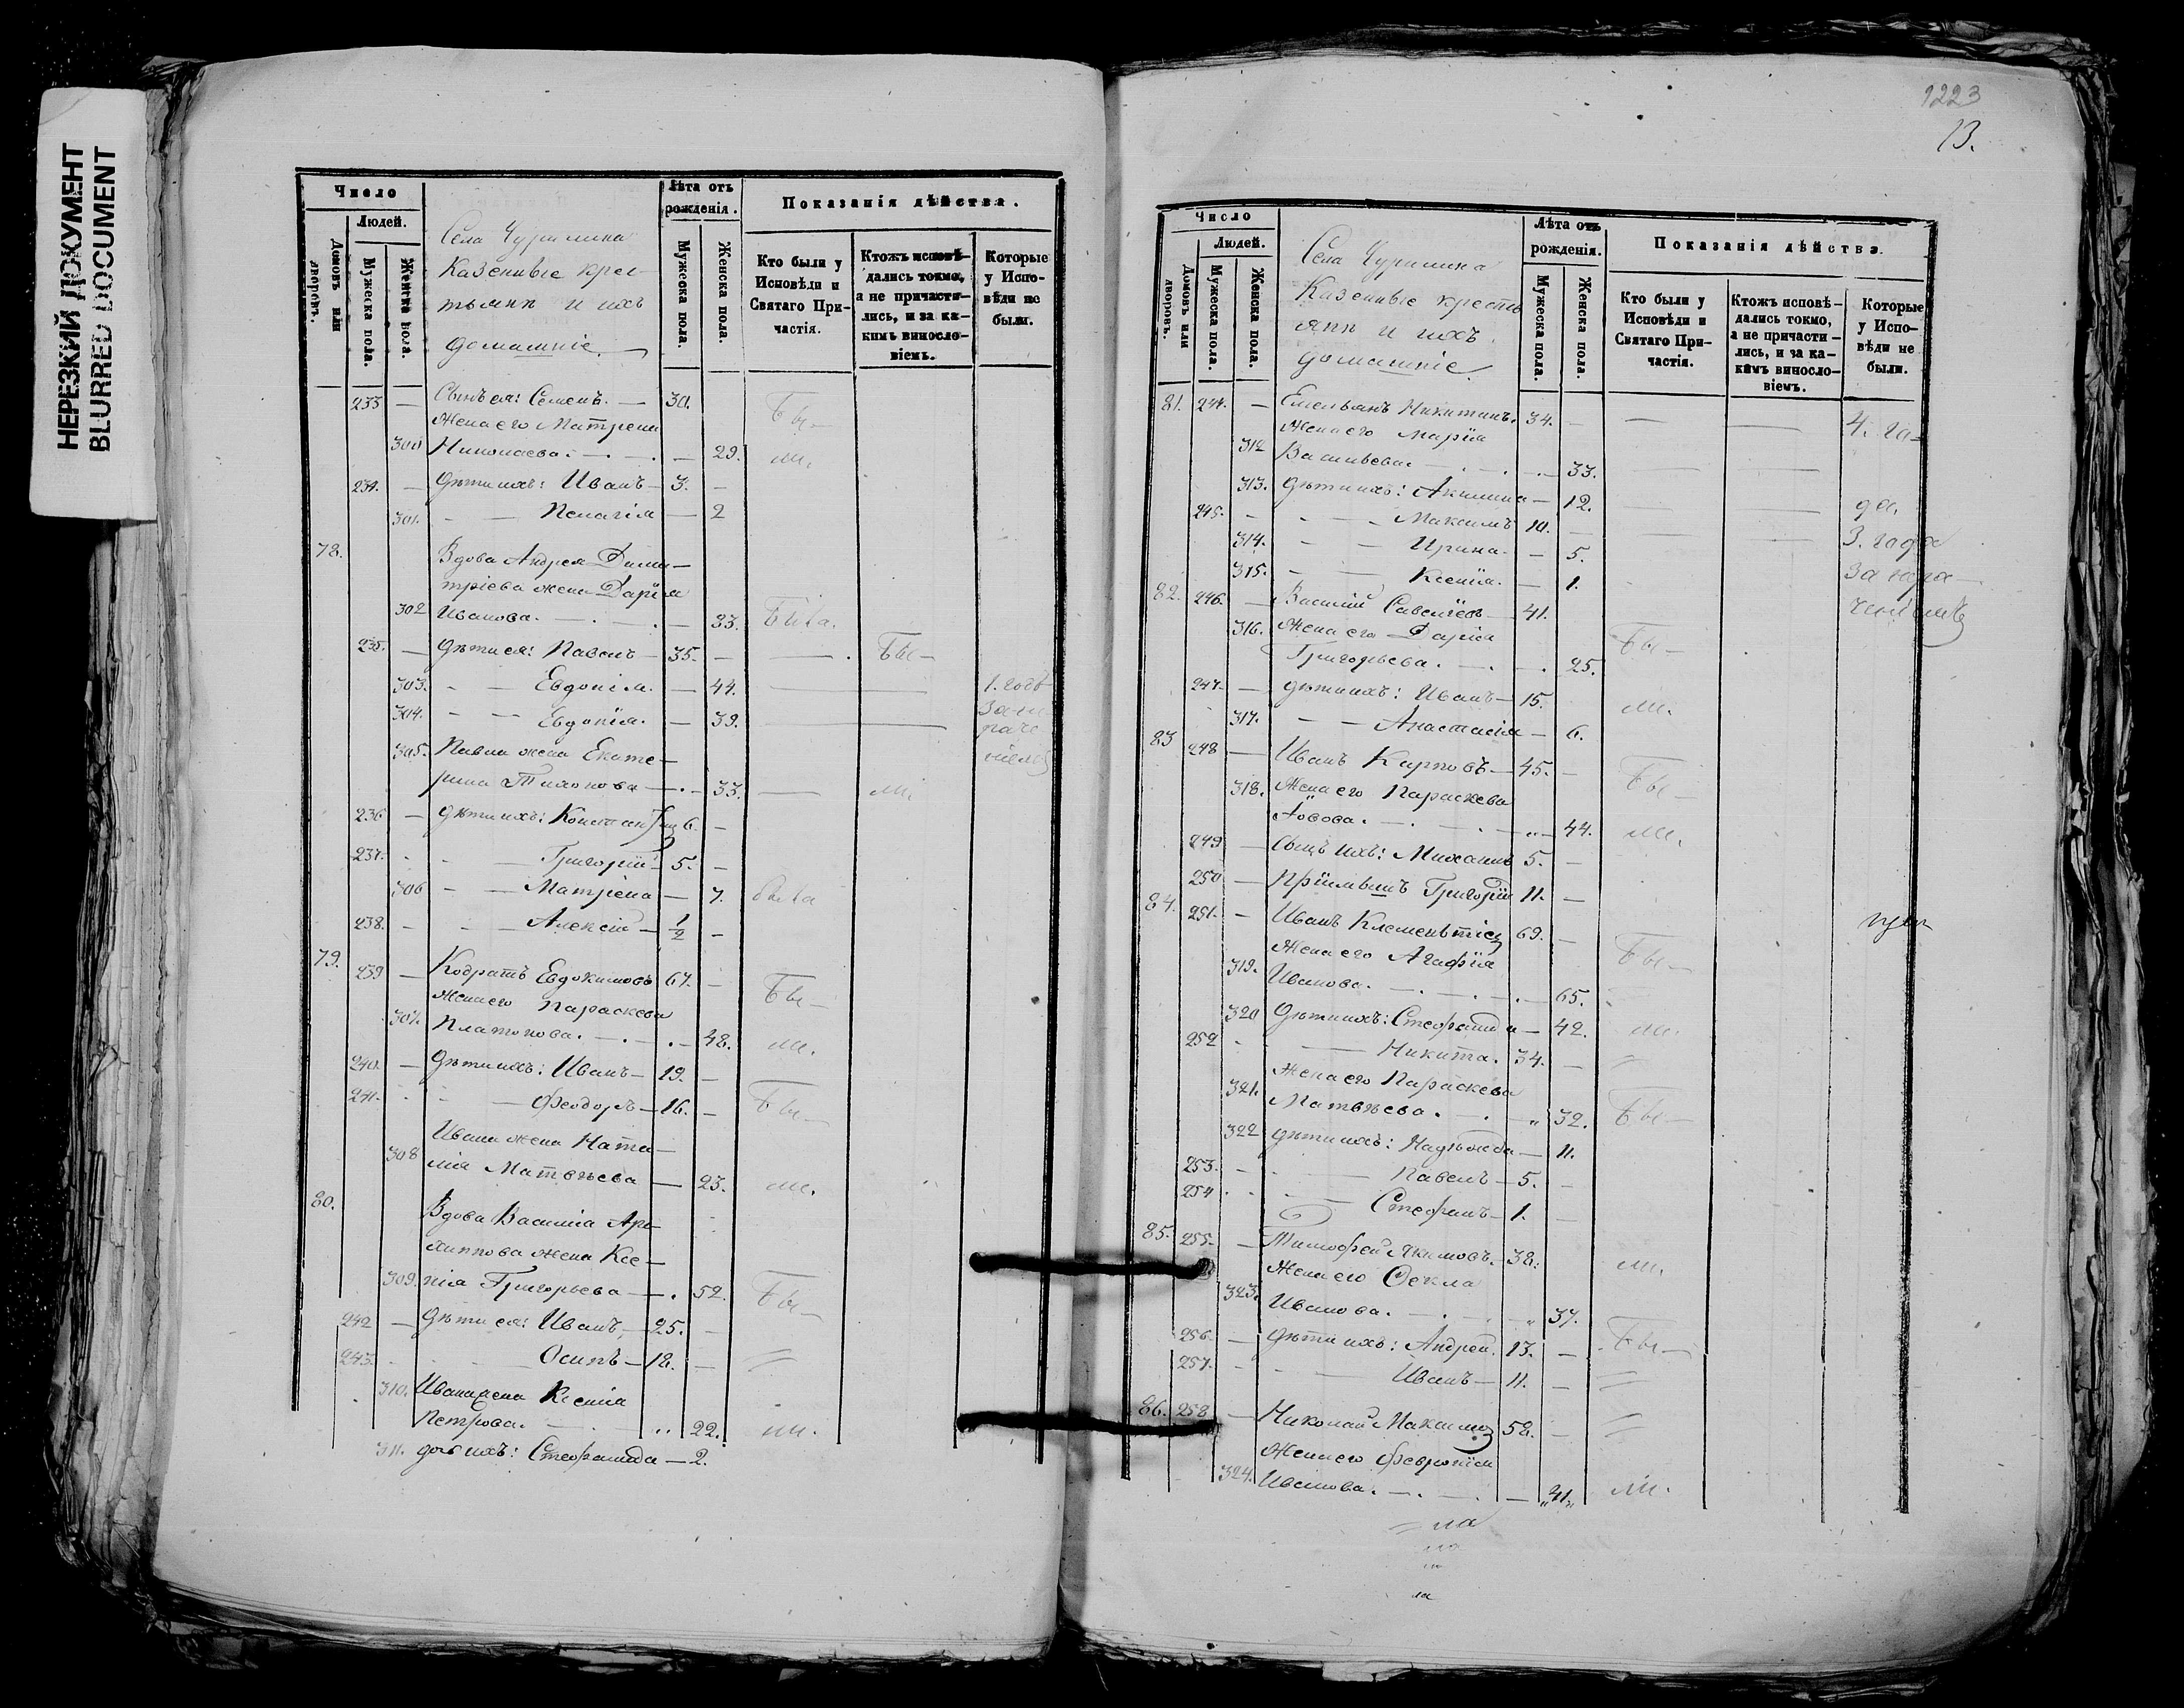 НЕРЕЗКИЙ ДОКУМЕНТ
BLURRED DOCUMENT
Число
Людей.
Домовъ или дворовъ.
Мужеска пола.
Женска пола.
Села Чурилина
Казенные крес-
тьяни и ихъ
домашніе.
Лѣта отъ рожденія.
Мужеска пола.
Женска пола.
Показанія дѣйства.
Кто были у Исповѣди и Святаго Причастія.
Ктожъ исповѣдались токмо, а не причастились, и за какимъ винословіемъ.
Которые у Исповѣди не были.
233 — Сынъ ея: Семенъ. — 30. Бы—
Жена его Матрена
300 Николаева. — . — . — 29. ли.
234. — Дѣти ихъ: Иванъ — 3. —
301. - — Пелагія — 2
78. Вдова Андрея Дими-
тріева жена Дарія
302 Иванова. — . — . — 83. Была.
235. — Дѣти ея: Павелъ — 35. — — . Бы—
303. - — Евдокія. — 44. — — 1. годъ
304. - — Евдокія. — 39. — —
305. Павла жена Екате-
рина Тихонова — . — 33. — ли.
236 — Дѣти ихъ: Константинъ 6. —
237. - — Григорій 5. —
306 - — Матрена — 7. была
238. - - — Алексій — 1/2 —
79. 239 — Кодратъ Евдокимовъ 67. — Бы—
Жена его Параскева
307. Платонова. — . — . — 48. ли.
240. — Дѣти ихъ: Иванъ — 19. —
241. - - — Феодоръ — 16. — Бы—
Ивана жена Ната-
308 лія Матвѣева — 23. ли.
80. Вдова Василія Ар-
хиппова жена Ксе-
309. нія Григорьева — . 52. Бы—
242 — Дѣти ея: Иванъ, — 25. —
243. - — Осипъ — 18. — =
310. Ивана жена Ксенія
Петрова. — 22. ли.
311. дочь ихъ: Стефанида — 2.
1223
13.
Число
Людей.
Домовъ или дворовъ.
Мужеска пола.
Женска пола.
Села Чурилина
Казенные кресть
яни и ихъ
домашніе.
Лѣта отъ рожденія.
Мужеска пола.
Женска пола.
Показанія дѣйства.
Кто были у Исповѣди и Святаго Причастія.
Ктожъ исповѣдались токмо, а не причастились, и за какимъ винословіемъ.
Которые у Исповѣди не были.
81. 244. — Емельянъ Никитинъ. 34. — — — 4. го-
Жена его Марія
312 Васильева. — . — . — 33. — —
313. Дѣти ихъ: Акилина — 12. — — да.
245. - - — Максимъ 10. — — — 3. года
314. - — Ирина. — 5. за нера-
315. - — Ксенія. — 1. ченіемъ
82. 246. — Василій Савельевъ — 41.
316. Жена его Дарія Бы—
Григорьева. — . — . 25.
247. — дѣти ихъ: Иванъ — 15. ли.
317. - — Анастасія — 6.
83 248 — Иванъ Карповъ — 45. — Бы—
318. Жена его Параскева
Львова. — . — . — 44. ли.
249 — Сынъ ихъ: Михаилъ 5. —
250 — Пріимышъ Григорій 11. —
84. 251. — Иванъ Клементіевъ 69. — Бы—
Жена его Агафія
319. Иванова. — . — . — 65.
320 Дѣти ихъ: Стефанида — 42. ли.
252 - — Никита. 34. — =
Жена его Параскева
321. Матвѣева. — . — „ 32. Бы—
322 дѣти ихъ: Надежда — 11.
253. - — Павелъ — 5. —
254 - — Стефанъ — 1. —
85. 255. — Тимофей Акимовъ. — 38. ли.
Жена его Фекла
323. Иванова. — . „ 37.
256. — Дѣти ихъ: Андрей. 13. — Бы—
257. - — Иванъ — 11. — =
86. 258 — Николай Максимовъ 58. — =
Жена его Февронія
324. Иванова. — . — . — „41„ ли.
= ла
ла
ла
ла